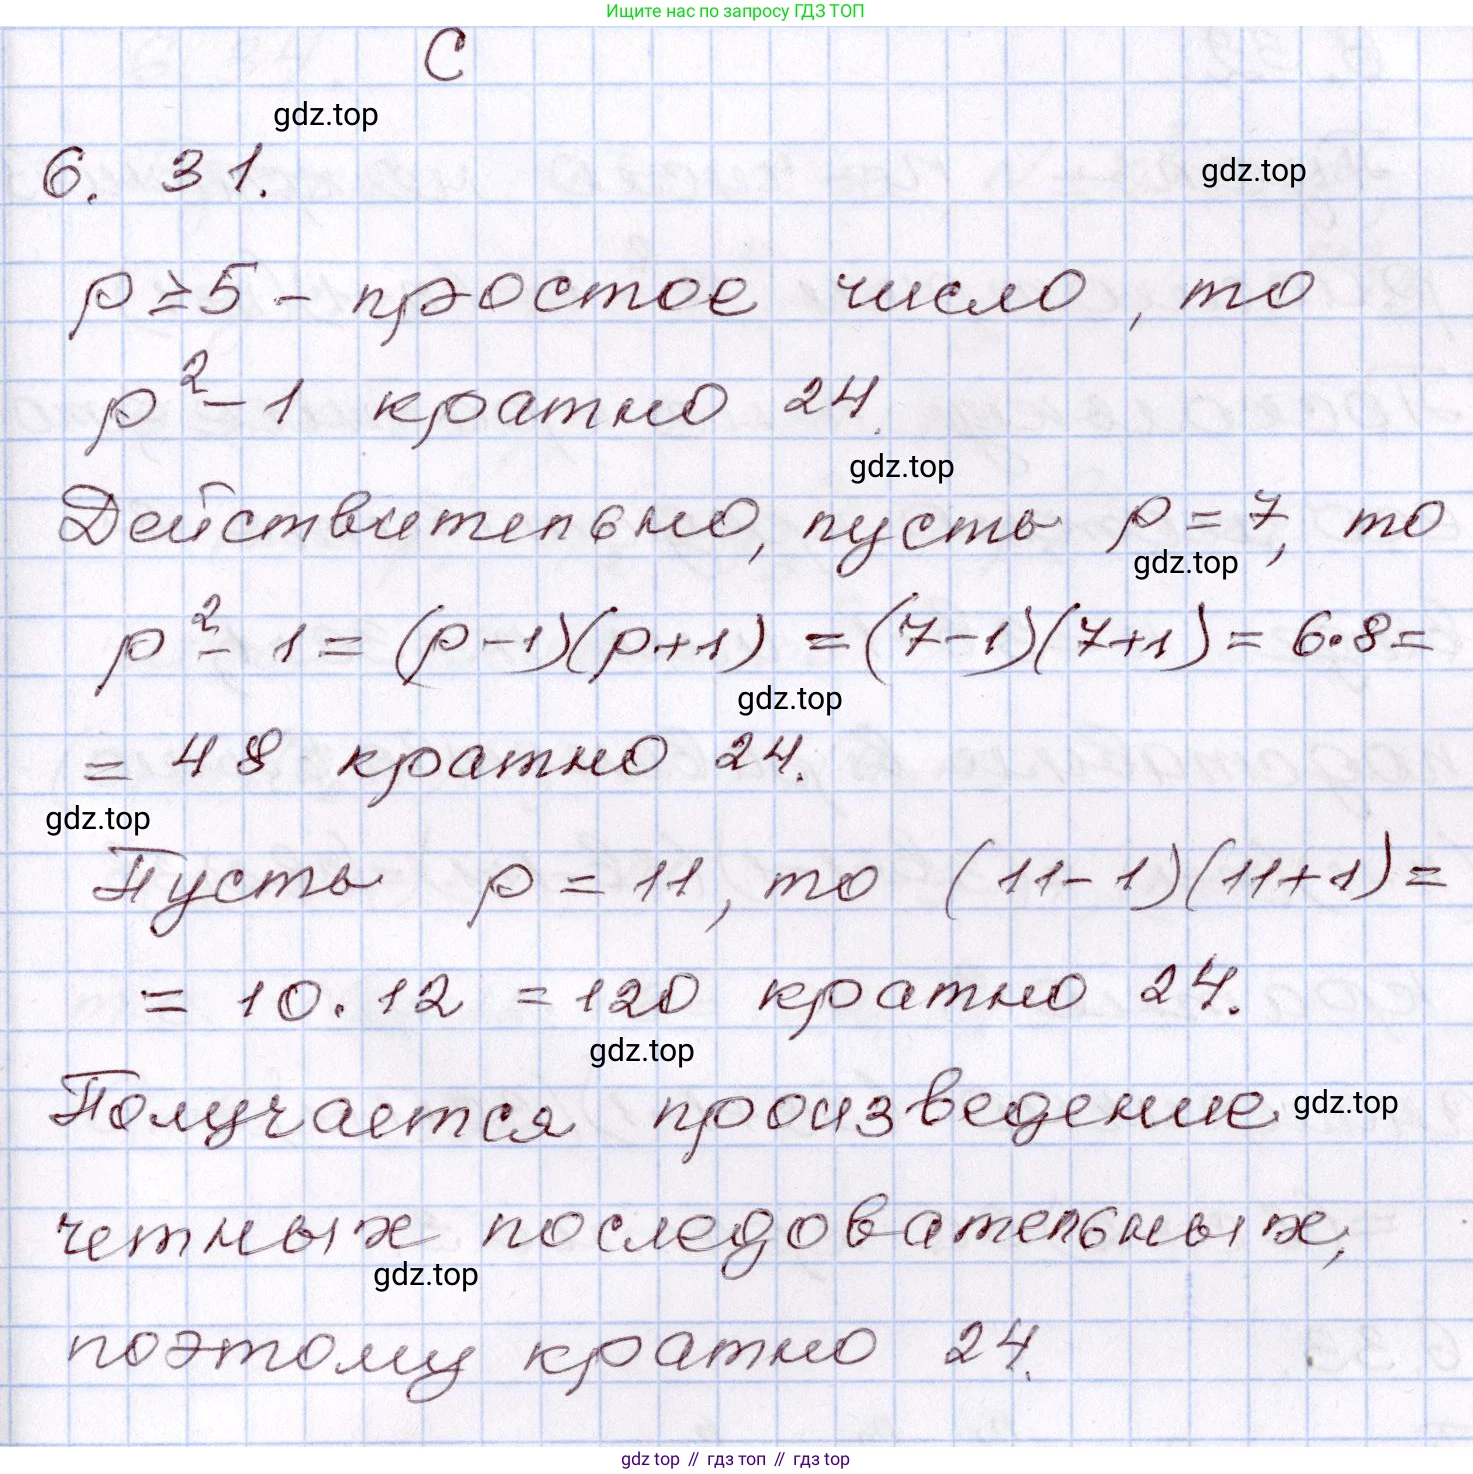 Ищите нас по запросу ГДЗ ТОП
С
gdz.top
6. 31.
gdz.top
p ≥ 5 – простое число, то
p² – 1 кратно 24.
gdz.top
Действительно, пусть p = 7, то
gdz.top
p² – 1 = (p – 1)(p + 1) = (7 – 1)(7 + 1) = 6 · 8 =
gdz.top
= 48 кратно 24.
gdz.top
Пусть p = 11, то (11 – 1)(11 + 1) =
= 10 · 12 = 120 кратно 24.
gdz.top
Получается произведение
gdz.top
четных последовательных,
gdz.top
поэтому кратно 24.
gdz top // гдз топ // гдз top